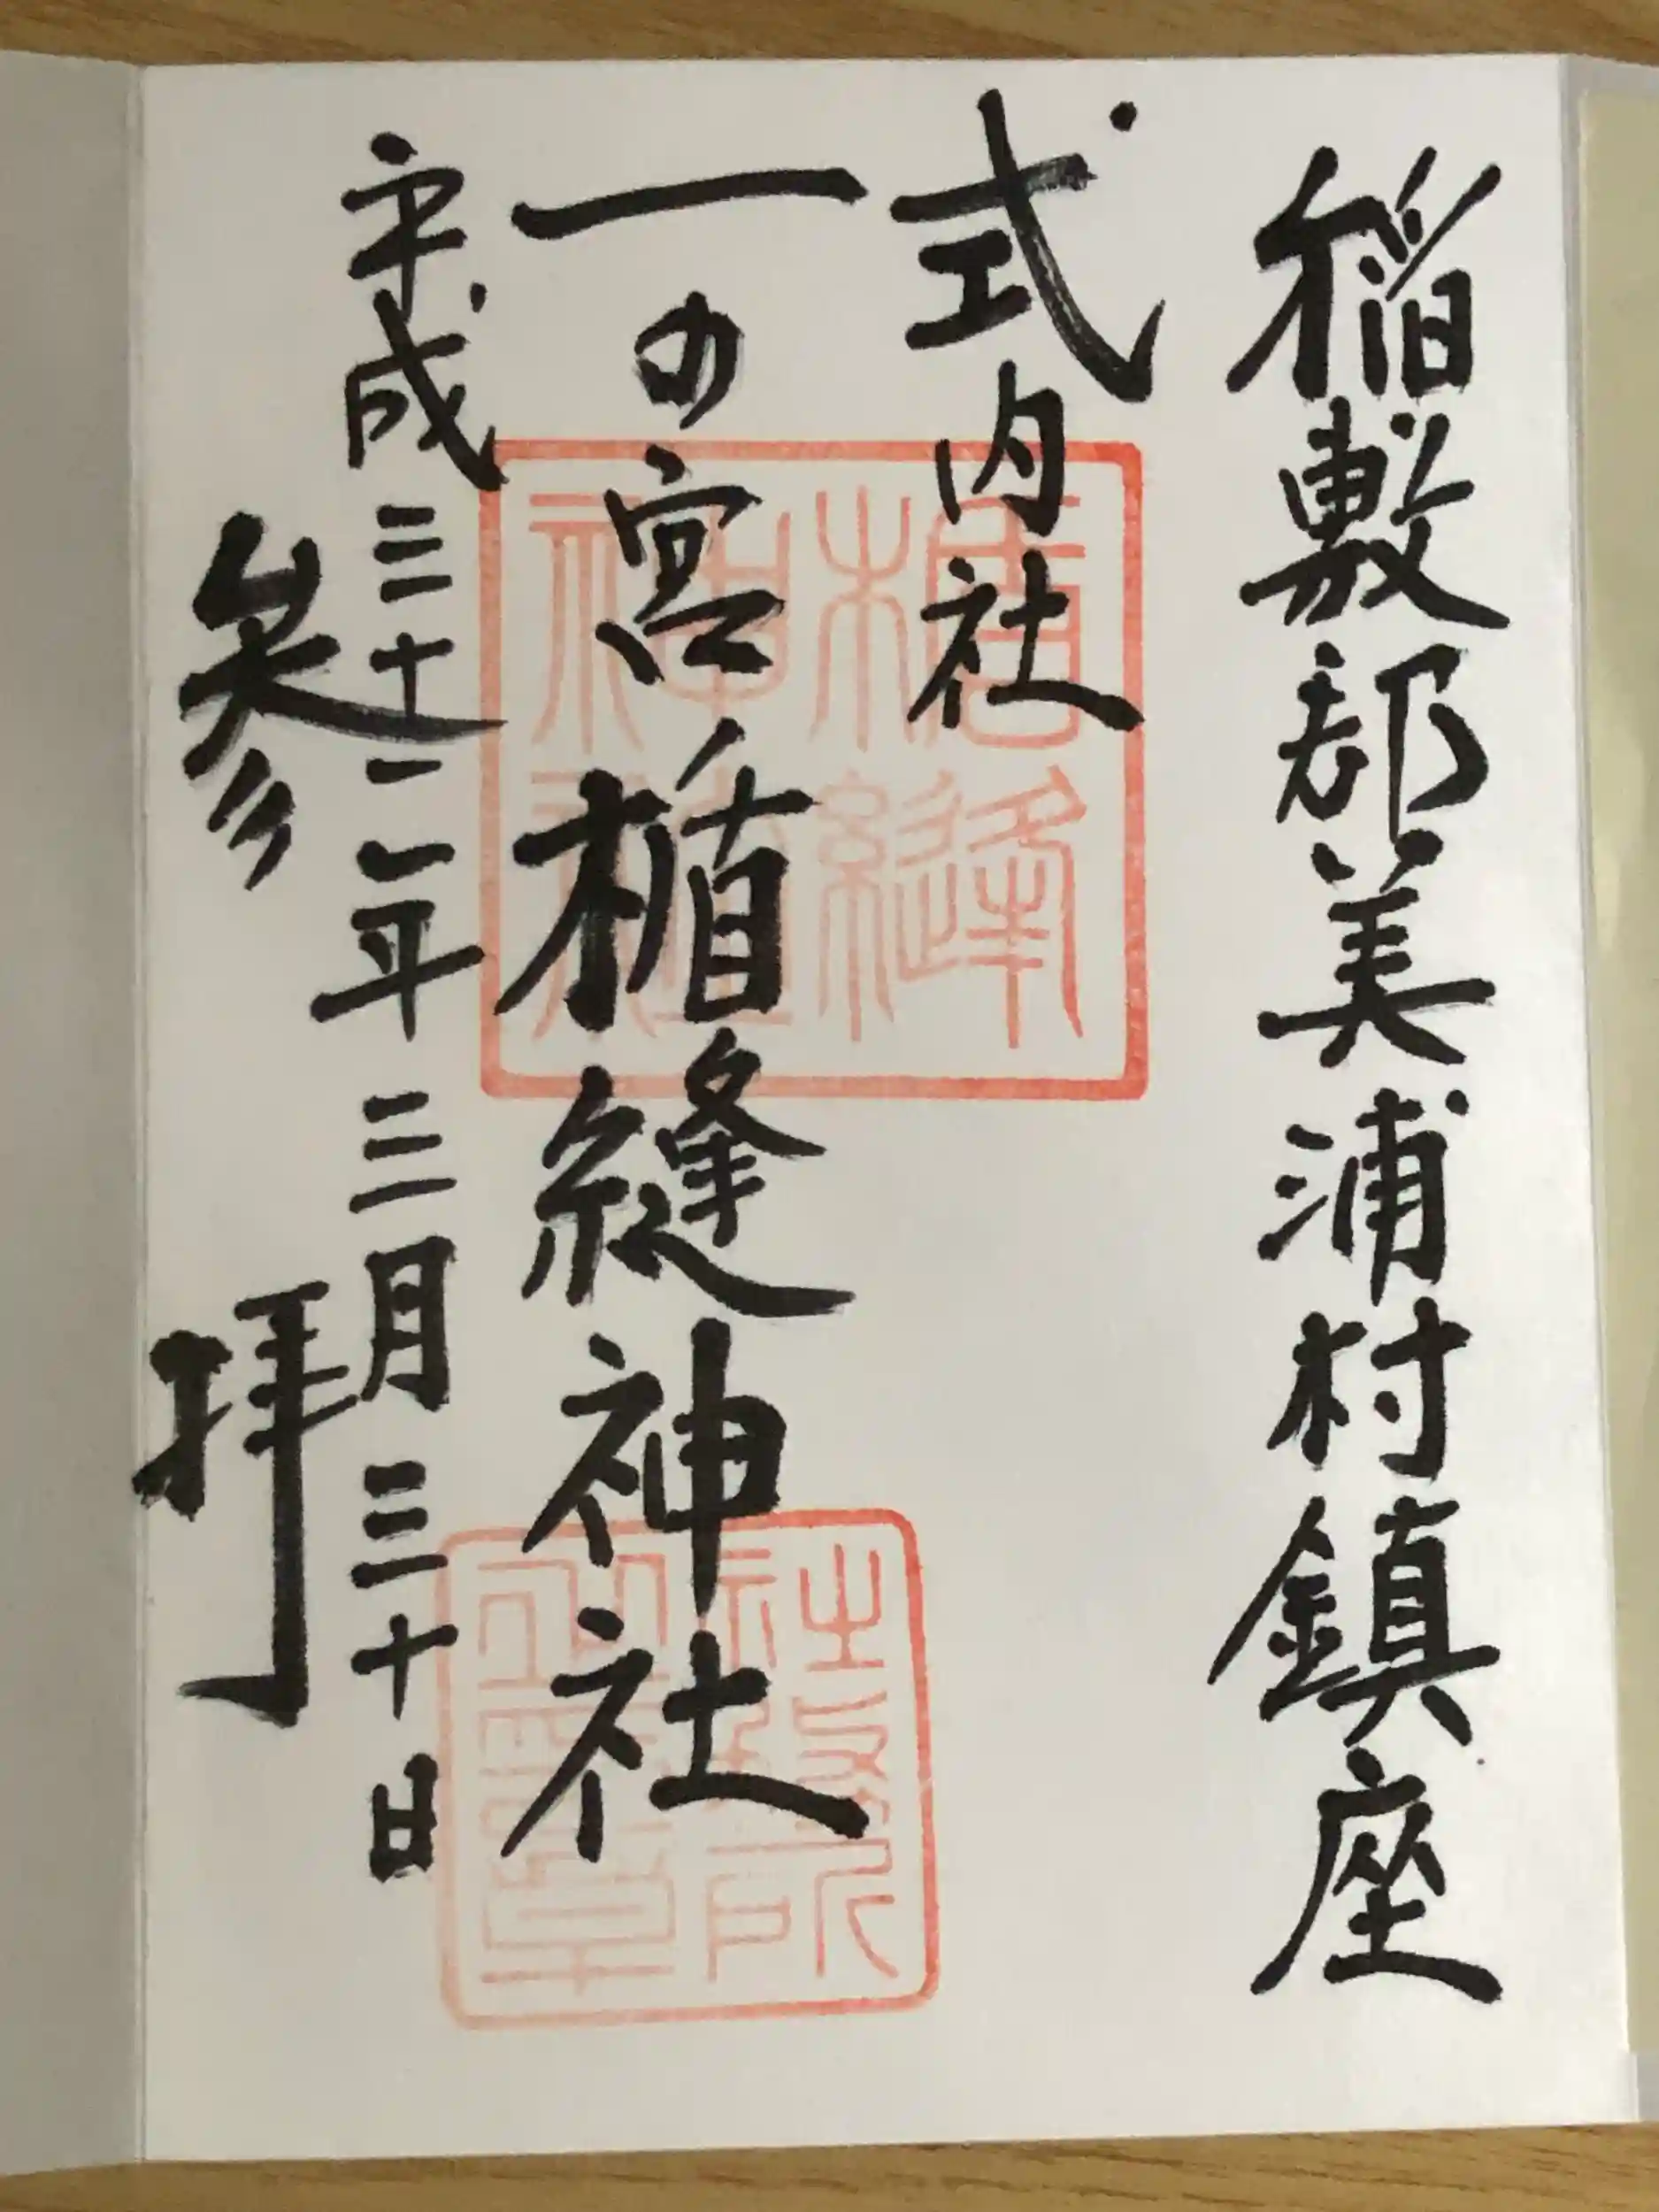 稲敷郡美浦村鎮座
式内社
一の宮楯縫神社
平成三十一年三月三十日
参拝
楯縫神社
社務所